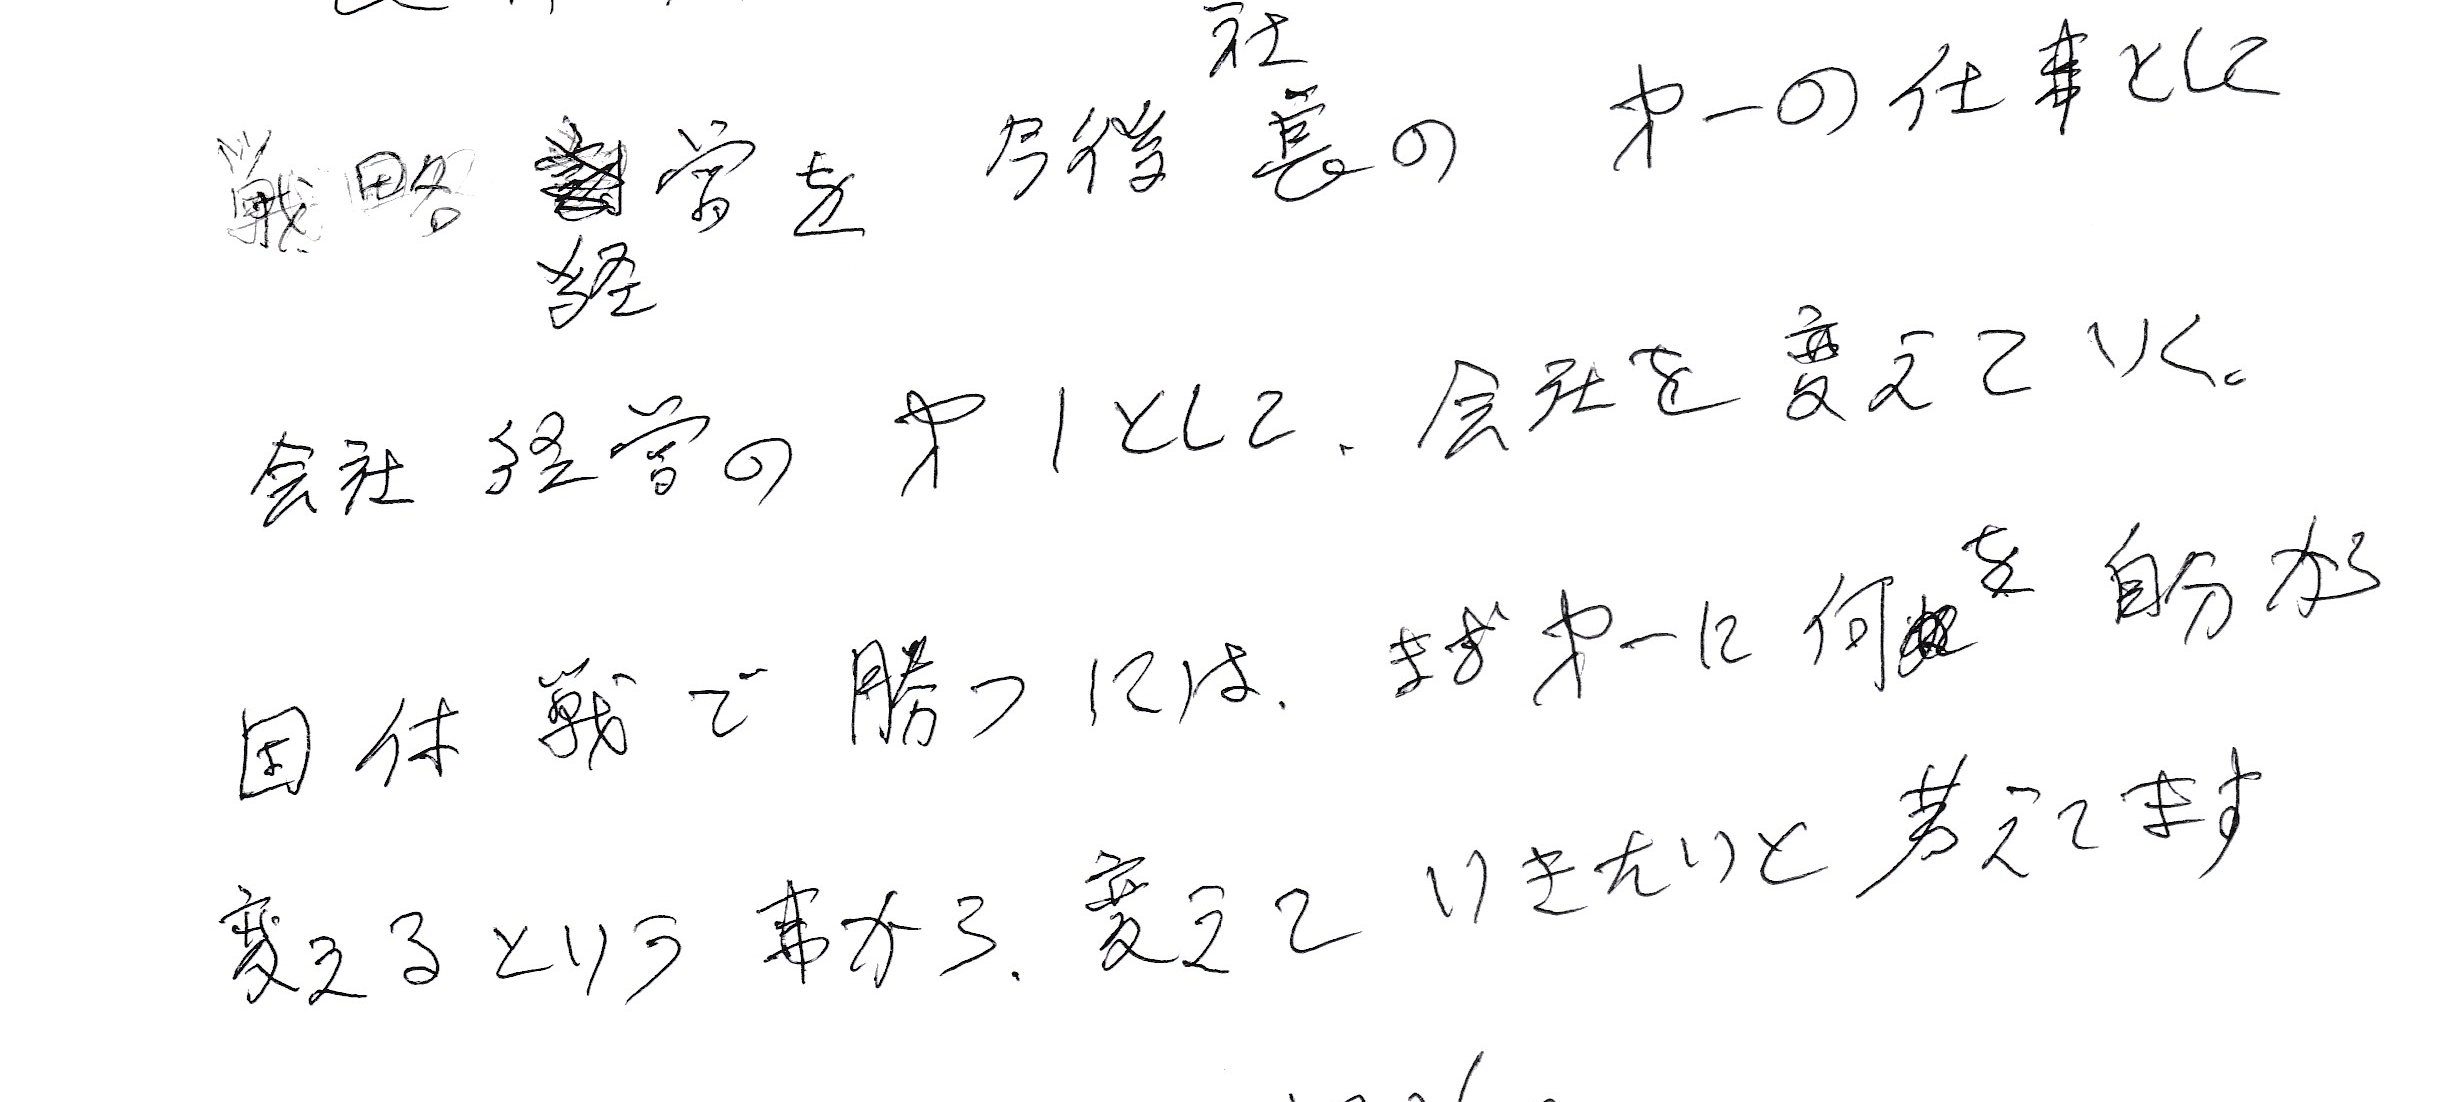 戦略経営を 今後社長の 第一の仕事として
会社経営の 第1として、会社を変えていく。
団体戦で勝つには、まず第一に何を自分から
変えるという事から、変えていきたいと考えてます